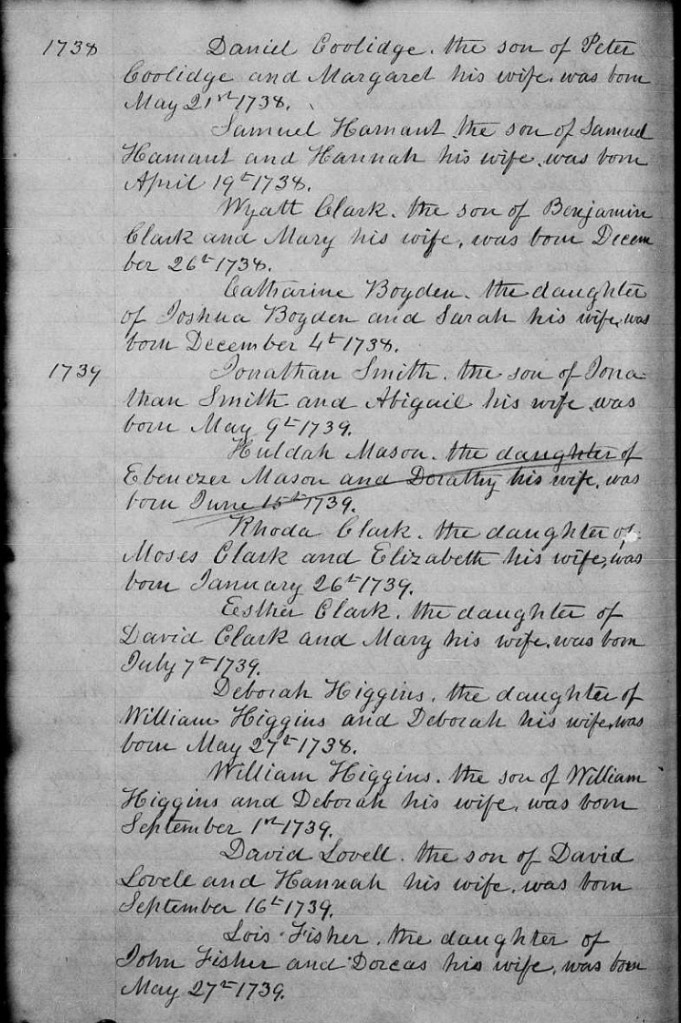 1738 Daniel Coolidge. the son of Peter
Coolidge and Margaret his wife. was born
May 21st 1738.
Samuel Hamant. the son of Samuel
Hamant and Hannah his wife. was born
April 19th 1738.
Wyatt Clark. the son of Benjamin
Clark and Mary his wife, was born Decem
ber 26th 1738.
Catharine Boyden. the daughter
of Joshua Boyden and Sarah his wife, was
born December 4th 1738.
1739 Jonathan Smith. the son of Jona-
than Smith and Abigail his wife. was
born May 9th 1739.
Huldah Mason. the daughter of
Ebenezer Mason and Dorathy his wife, was
born June 15th 1739.
Rhoda Clark. the daughter of
Moses Clark and Elizabeth his wife, was
born January 26th 1739.
Eesther Clark. the daughter of
David Clark and Mary his wife. was born
July 7th 1739.
Deborah Higgins. the daughter of
William Higgins and Deborah his wife, was
born May 27th 1738.
William Higgins. the son of William
Higgins and Deborah his wife, was born
September 1st 1739.
David Lovell. the son of David
Lovell and Hannah his wife, was born
September 16th 1739.
Lois Fisher. the daughter of
John Fisher and Dorcas his wife, was born
May 27th 1739.